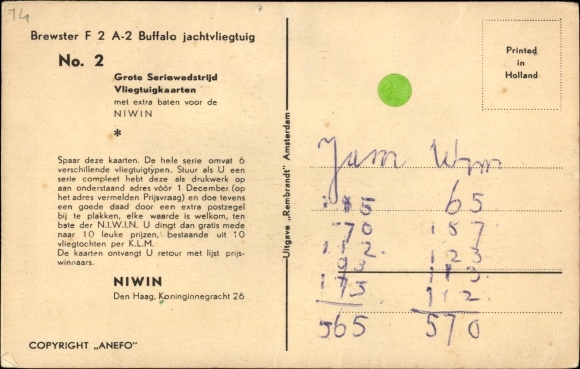 14
Brewster F 2 A-2 Buffalo jachtvliegtuig
No. 2
Grote Seriewedstrijd
Vliegtuigkaarten
met extra baten voor de
NIWIN
*
Spaar deze kaarten. De hele serie omvat 6
verschillende vliegtuigtypen. Stuur als U een
serie compleet hebt deze als drukwerk op
aan onderstaand adres vóór 1 December (op
het adres vermelden Prijsvraag) en doe tevens
een goede daad door een extra postzegel
bij te plakken, elke waarde is welkom, ten
bate der N.I.W.I.N. U dingt dan gratis mede
naar 10 leuke prijzen, bestaande uit 10
vliegtochten per K.L.M.
De kaarten ontvangt U retour met lijst prijs-
winnaars.
NIWIN
Den Haag, Koninginnegracht 26
COPYRIGHT „ANEFO"
Uitgave „Rembrandt" Amsterdam
Printed
in
Holland
Jam Wim
65
70 157
112 123
93 113
175 112
565 570